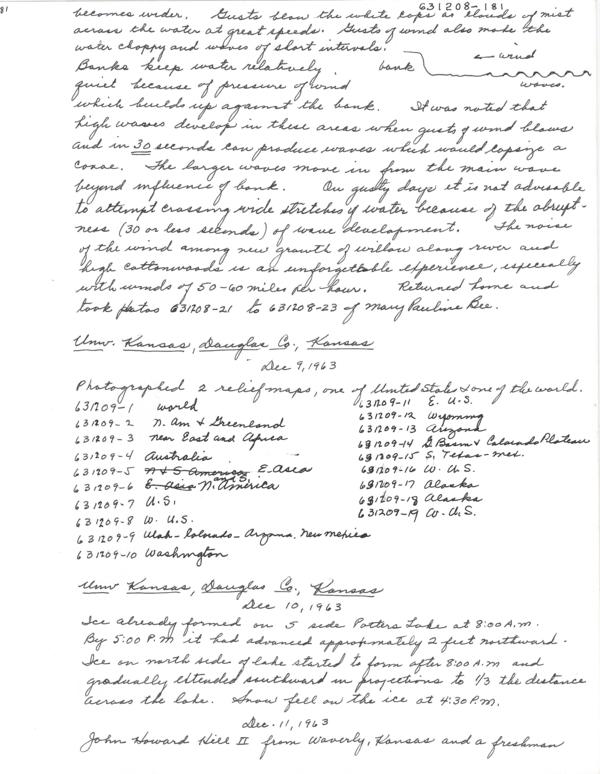 81
631208-181
becomes wider. Gusts blow the white caps as clouds of mist
across the water at great speeds. Gusts of wind also make the
water choppy and waves of short intervals.
Banks keep water relatively bank ← wind
quiet because of pressure of wind waves.
which builds up against the bank. It was noted that
high waves develop in these areas when gusts of wind blows
and in 30 seconds can produce waves which would capsize a
canoe. The larger waves move in from the main wave
beyond influence of bank. On gusty days it is not advisable
to attempt crossing wide stretches of water because of the abrupt-
ness (30 or less seconds) of wave development. The noise
of the wind among new growth of willow along river and
high cottonwoods is an unforgettable experience, especially
with winds of 50-60 miles per hour. Returned home and
took photos 631208-21 to 631208-23 of Mary Pauline Bee.
Univ. Kansas, Douglas Co., Kansas
Dec 9, 1963
Photographed 2 relief maps, one of United States & one of the world.
631209-1 world
631209-2 N. Am & Greenland
631209-3 Near East and Africa
631209-4 Australia
631209-5 N & S America E. Asia
631209-6 E. Asia N. and S. America
631209-7 U.S.
631209-8 W. U.S.
631209-9 Utah-Colorado-Arizona. New Mexico
631209-10 Washington
631209-11 E. U.S.
631209-12 Wyoming
631209-13 Arizona
631209-14 G Basin & Colorado Plateau
631209-15 S. Texas-Mex.
631209-16 W. U.S.
631209-17 Alaska
631209-18 Alaska
631209-19 W. U.S.
Univ Kansas, Douglas Co., Kansas
Dec 10, 1963
Ice already formed on S side Potters Lake at 8:00 A.m.
By 5:00 P.M it had advanced approximately 2 feet northward.
Ice on north side of lake started to form after 8:00 A.m and
gradually extended southward in projections to 1/3 the distance
across the lake. Snow fell on the ice at 4:30 P.M.
Dec. 11, 1963
John Howard Hill II from Waverly, Kansas and a freshman